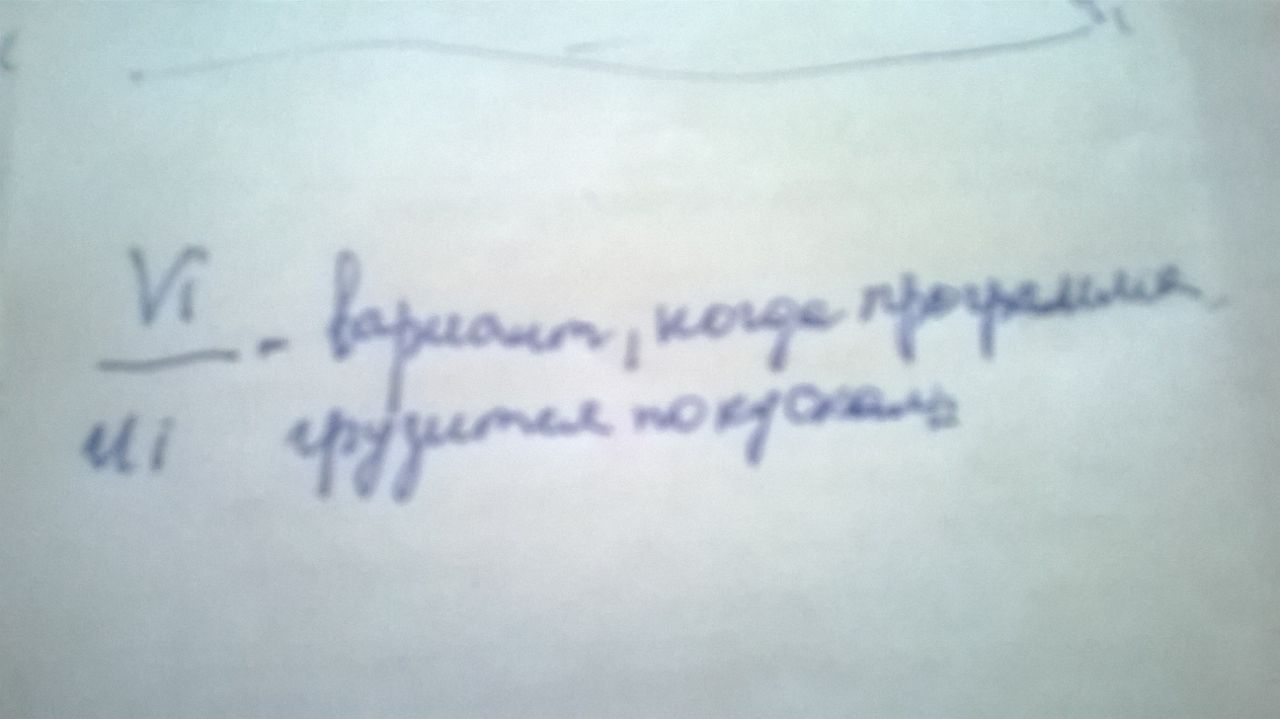 Vi
— - вариант, когда программа
ui грузится покускам